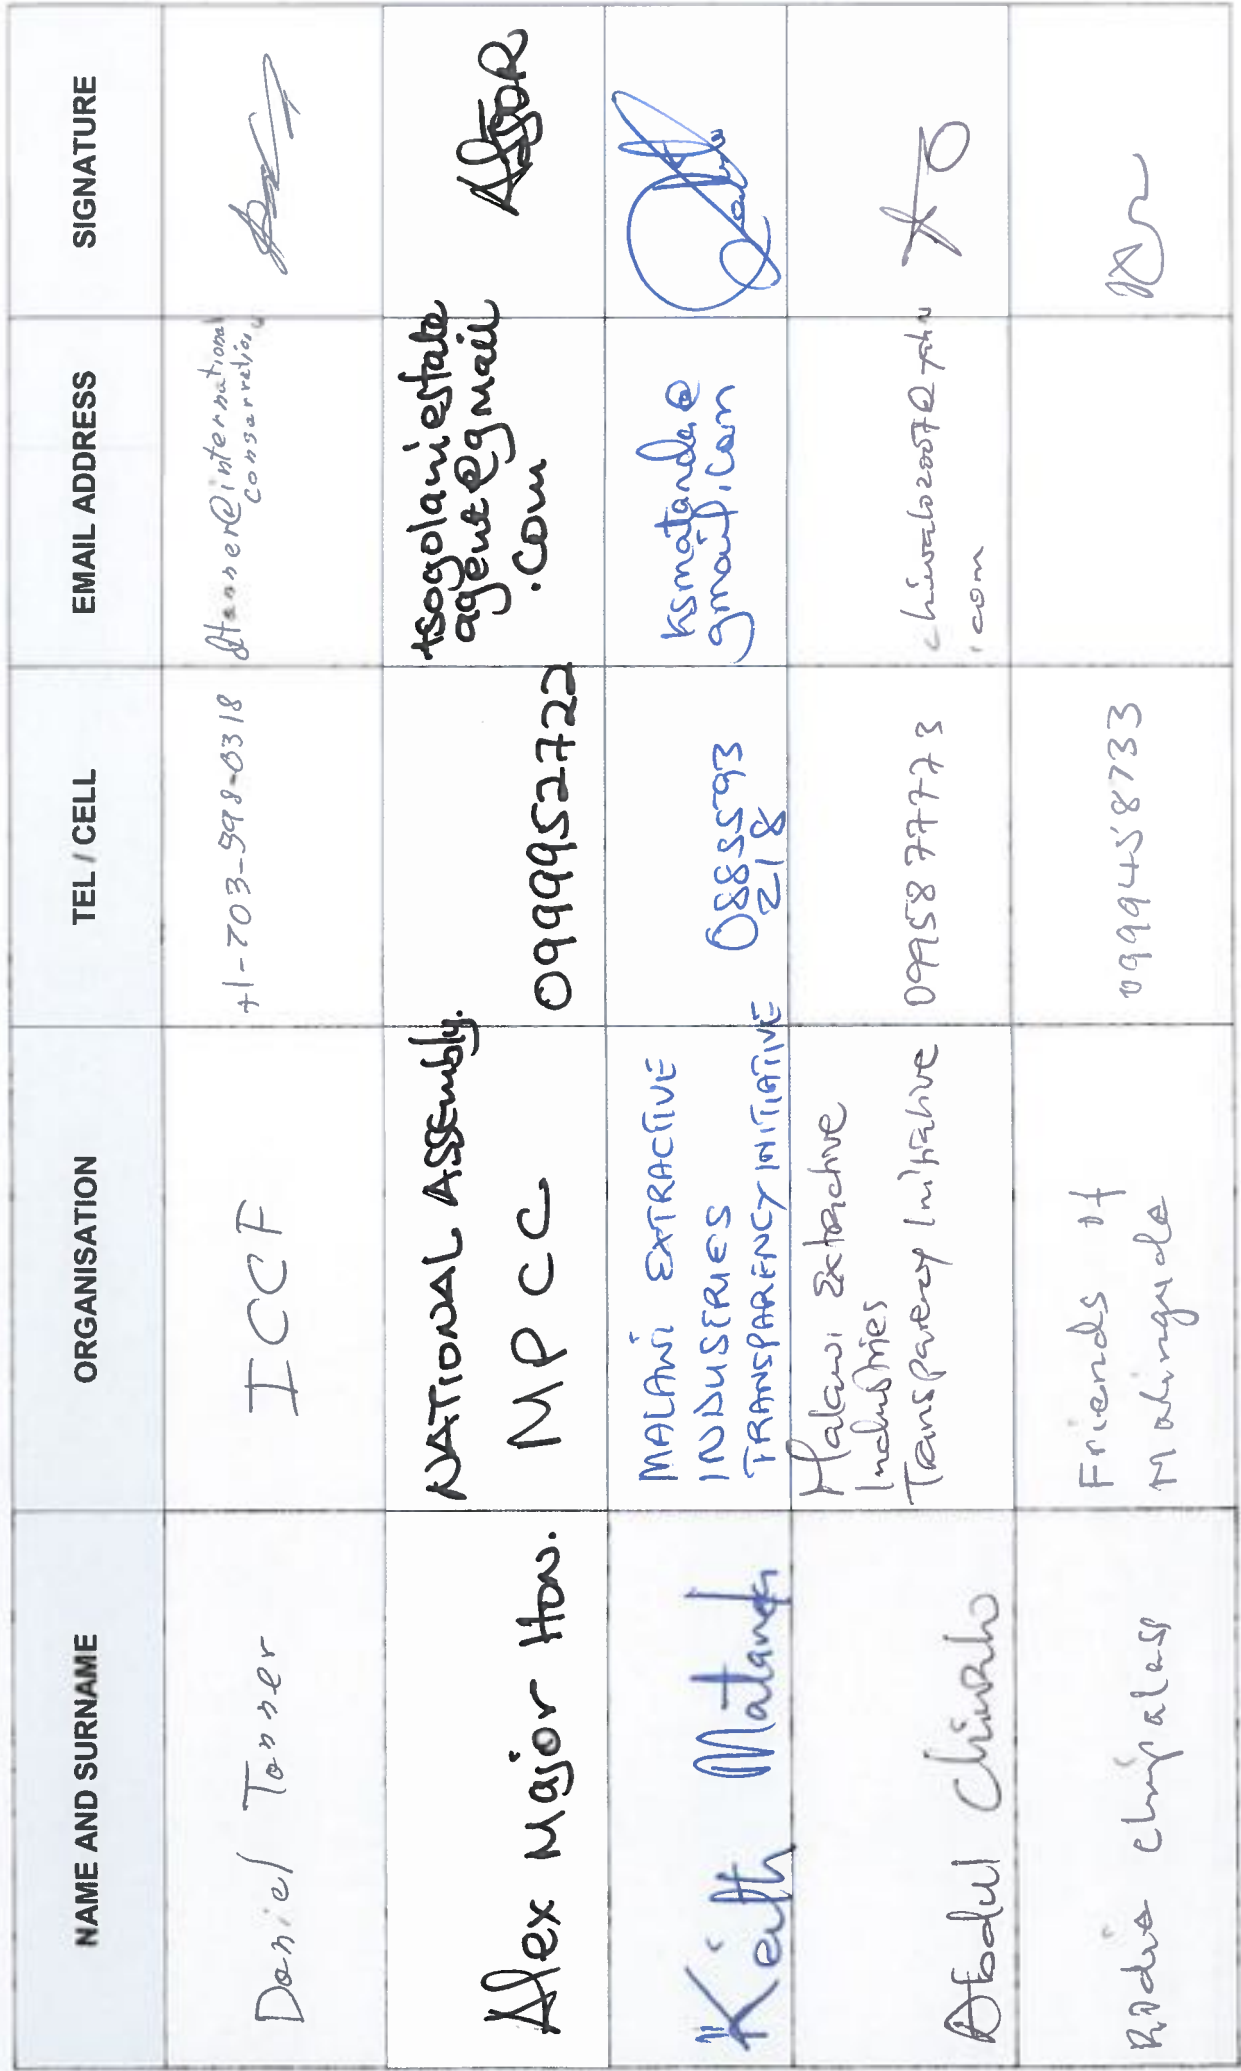 NAME AND SURNAME
ORGANISATION
TEL / CELL
EMAIL ADDRESS
SIGNATURE
Daniel Tanner
ICCF
+1-703-598-0318
dtanner@international
conservation
Alex Major Hon.
NATIONAL ASSEMBLY.
MPCC
0999952722
tsogolaniestate
agent@gmail
.com
Keith
MALAWI EXTRACTIVE
INDUSTRIES
TRANSPARENCY INITIATIVE
0885593
218
ksmatanda@
gmail.com
Chiwalo
Malawi Extractive
Industries
Transparency Initiative
0995877773
chiwalo2007@yahoo
.com
Friends of
0999458733